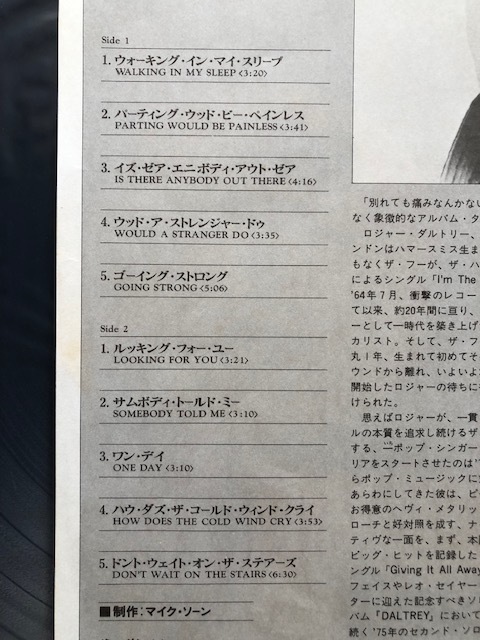 Side 1
1. ウォーキング・イン・マイ・スリープ
WALKING IN MY SLEEP <3:20>
2. パーティング・ウッド・ビー・ペインレス
PARTING WOULD BE PAINLESS <3:41>
3. イズ・ゼア・エニボディ・アウト・ゼア
IS THERE ANYBODY OUT THERE <4:16>
4. ウッド・ア・ストレンジャー・ドゥ
WOULD A STRANGER DO <3:35>
5. ゴーイング・ストロング
GOING STRONG <5:06>
Side 2
1. ルッキング・フォー・ユー
LOOKING FOR YOU <3:21>
2. サムボディ・トールド・ミー
SOMEBODY TOLD ME <3:10>
3. ワン・デイ
ONE DAY <3:10>
4. ハウ・ダズ・ザ・コールド・ウィンド・クライ
HOW DOES THE COLD WIND CRY <3:53>
5. ドント・ウェイト・オン・ザ・ステアーズ
DON'T WAIT ON THE STAIRS <6:30>
■制作：マイク・ソーン
「別れても痛みなんかない
なく象徴的なアルバム・タ
ロジャー・ダルトリー、
ンドンはハマースミス生ま
もなくザ・フーが、ザ・ハ
によるシングル「I'm The
'64年7月、衝撃のレコー
て以来、約20年間に亘り、
ーとして一時代を築き上げ
カリスト。そして、ザ・フ
丸1年、生まれて初めてそ
ウンドから離れ、いよいよ
開始したロジャーの待ちに
けられた。
思えばロジャーが、一貫
ルの本質を追求し続けるザ
する、一ポップ・シンガー
リアをスタートさせたのは'
らポップ・ミュージックに
あらわにしてきた彼は、ピ
お得意のヘヴィ・メタリッ
ローチと好対照を成す、ナ
ティヴな一面を、まず、本
ビッグ・ヒットを記録した
ングル「Giving It All Away
フェイスやレオ・セイヤー
ターに迎えた記念すべきソ
バム『DALTREY』において
続く'75年のセカンド・ソロ